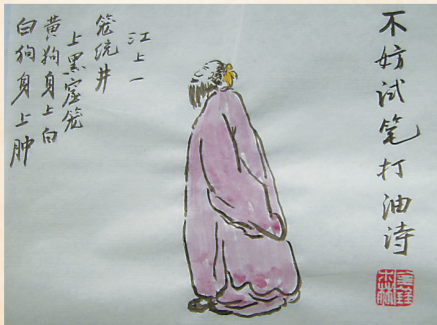 不妨试笔打油诗
江上一
笼统井
上黑窟笼
黄狗身上白
白狗身上肿